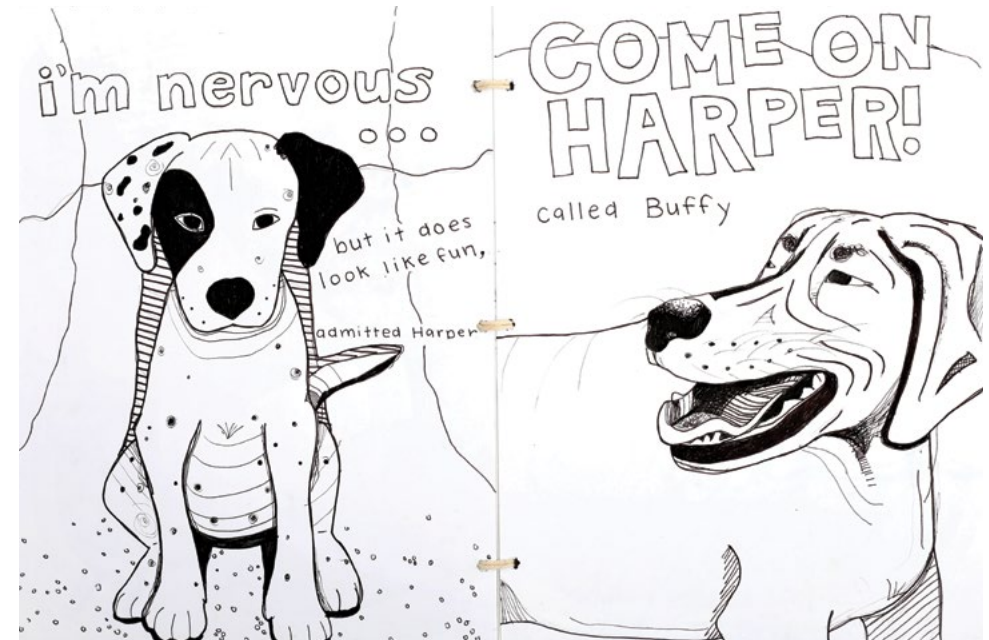 i'm nervous
...
but it does
look like fun,
admitted Harper
COME ON
HARPER!
called Buffy